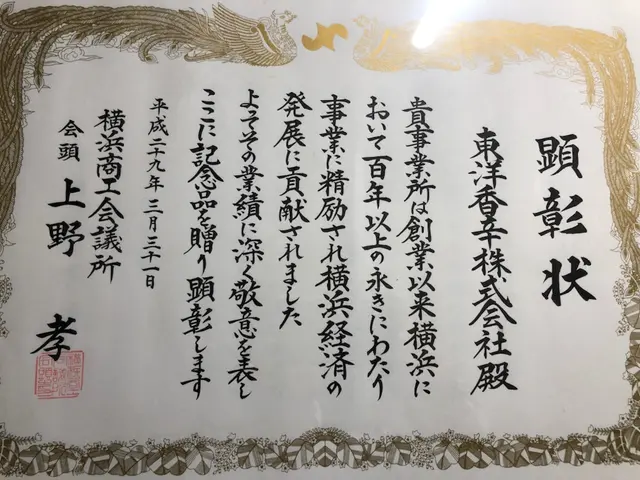 顕彰状
東洋香辛株式会社殿
貴事業所は創業以来横浜に
おいて百年以上の永きにわたり
事業に精励され横浜経済の
発展に貢献されました
よってその業績に深く敬意を表し
ここに記念品を贈り顕彰します
平成二十九年三月三十一日
横浜商工会議所
会頭 上野 孝